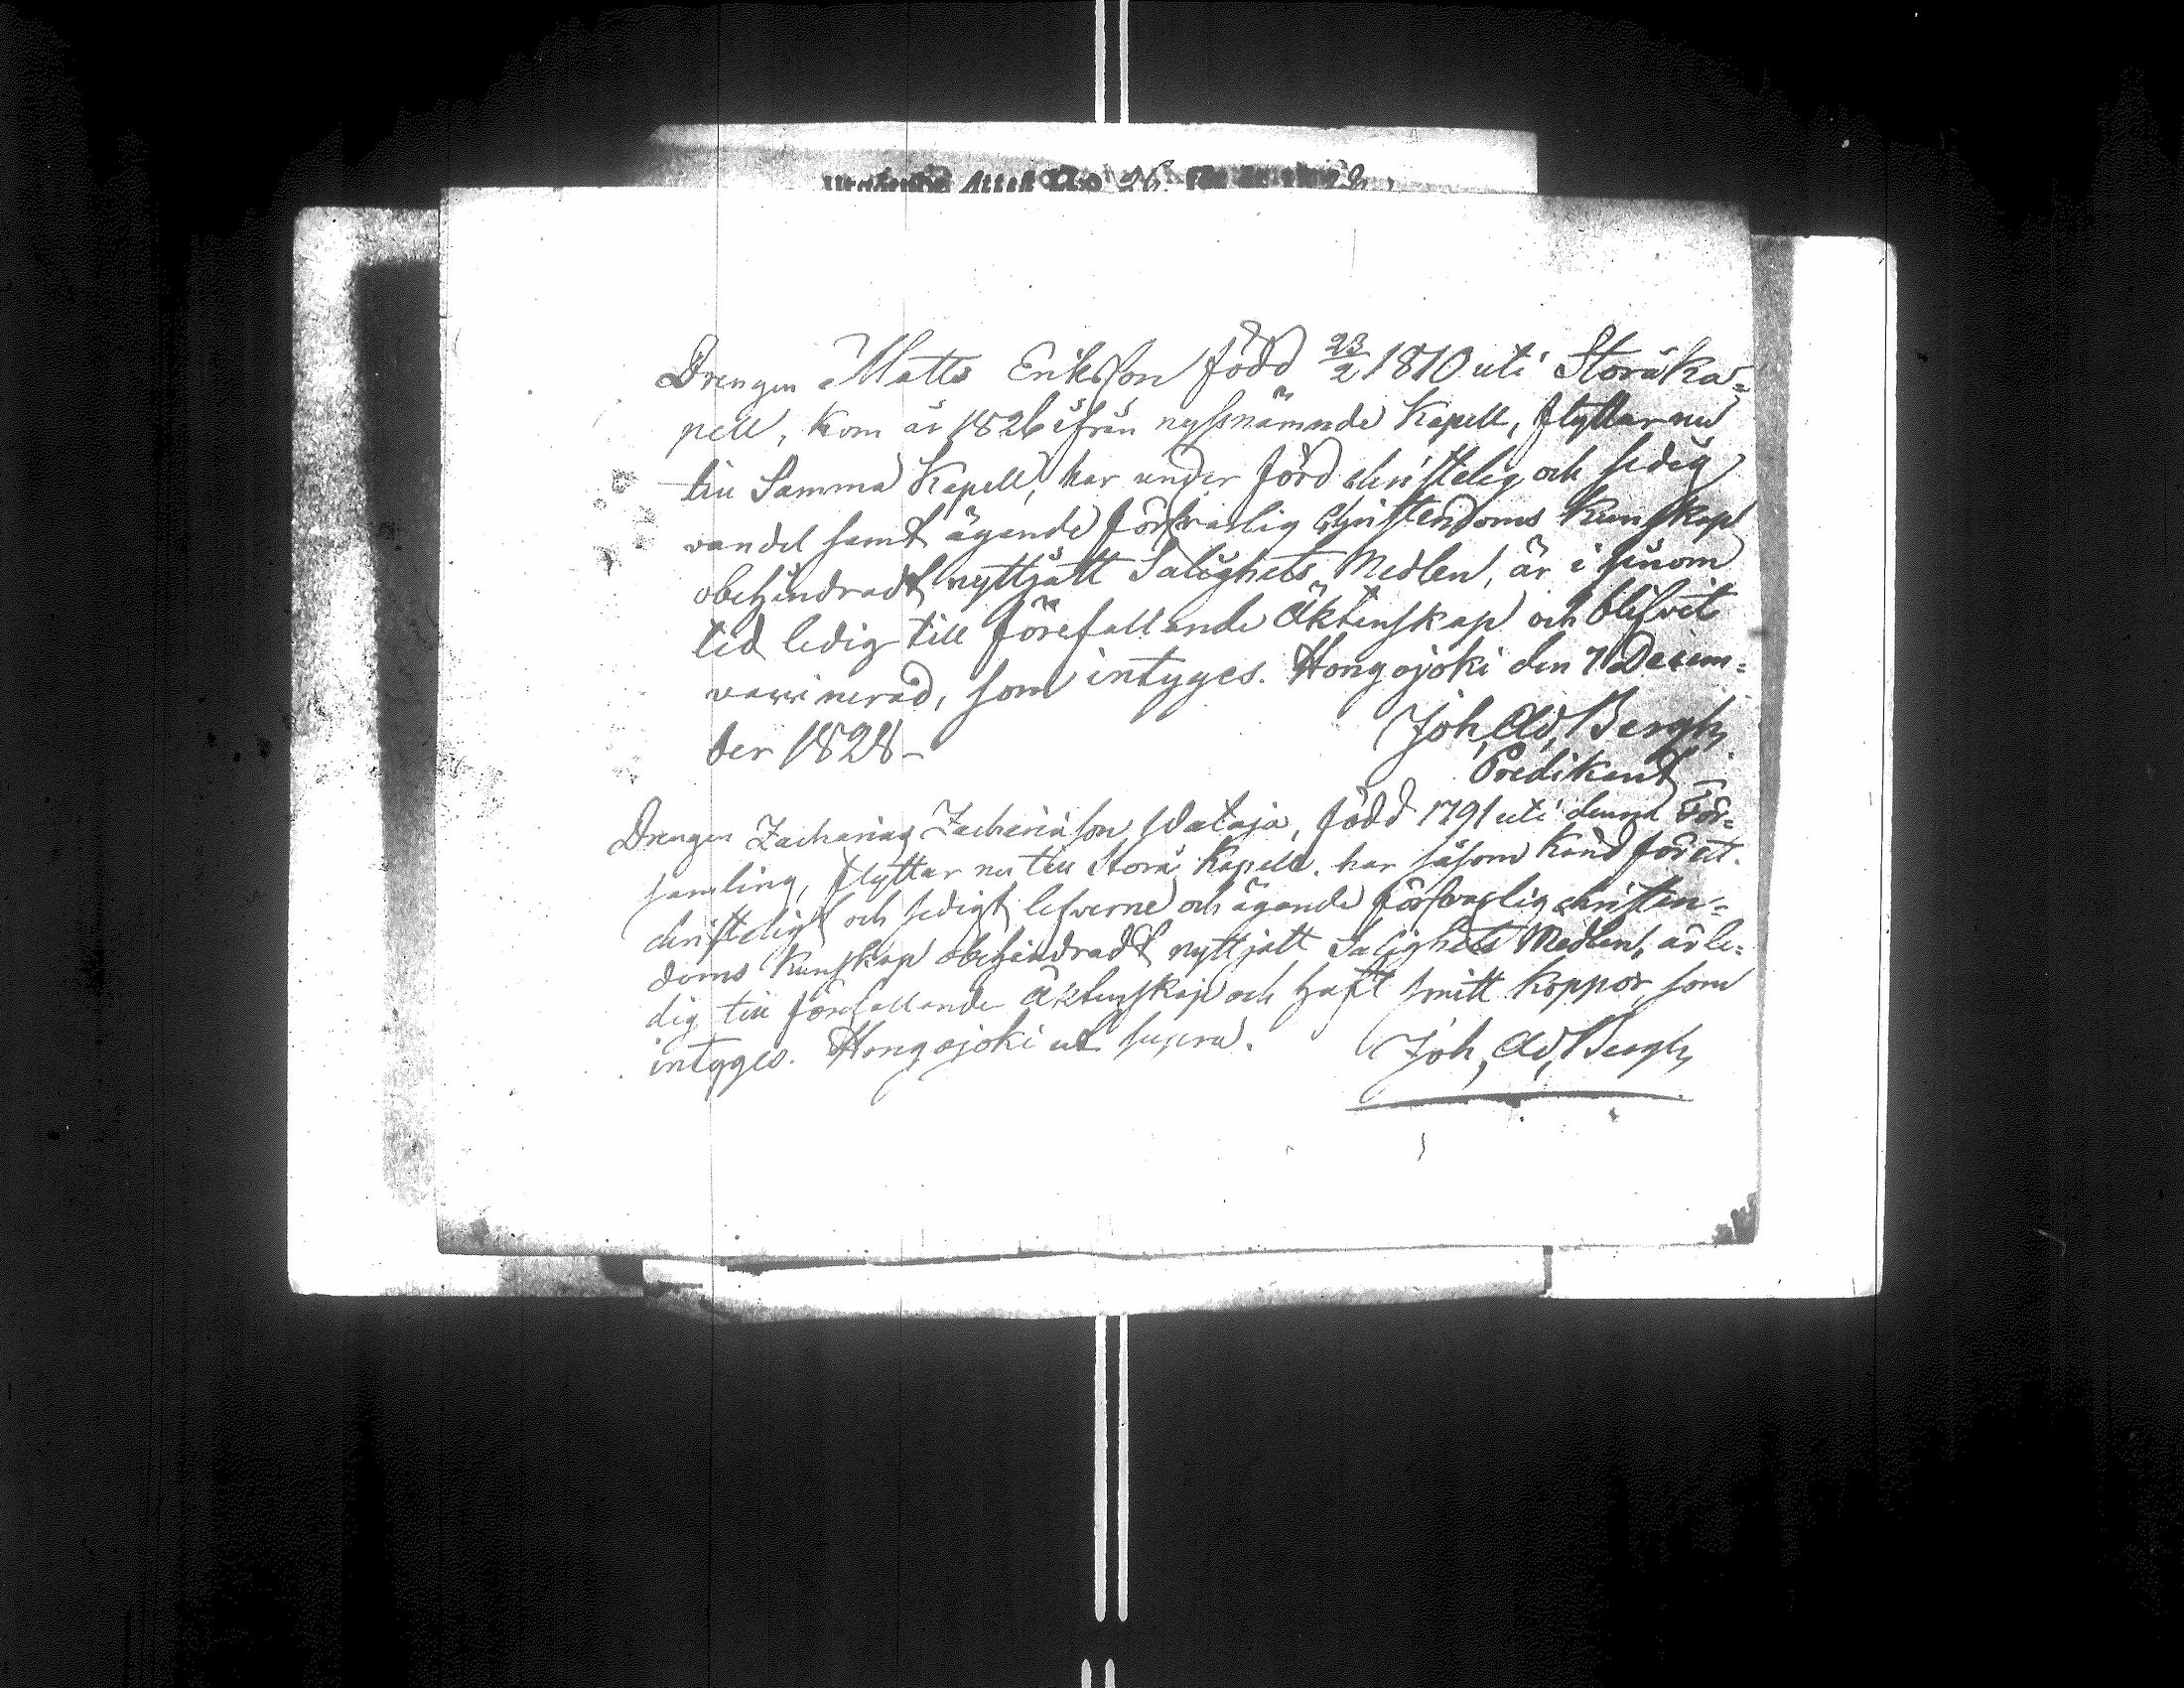 Drengen Matts Eriksson född 23/2 1810 uti Storå Ka=
pell, kom år 1826 ifrån nyssnämnde Kapell, flyttar nu
till Samma Kapell, har under förd christelig och sedig
vandel samt ägande försvarlig Christendoms Kunskap
obehindradt nyttjatt Salighets Medlen, är i sinom
tid ledig till förefallande Äktenskap och blifvit
vaccinerad, som intyges. Hongojoki den 7 Decem=
ber 1828
Joh, Ad, Bergh,
Predikant
Drengen Zacharias Zachariasson Wataja, född 1791 uti denna För=
samling, flyttar nu till Storå Kapell. har såsom känd för ett
christeligt och sedigt lefverne och ägande försvarlig christen=
doms Kunskap obehindradt nyttjatt Salighets Medlen, är le=
dig till förefallande Äktenskap och haft smitt koppor, som
intyges. Hongojoki ut supra.
Joh, Ad, Bergh,